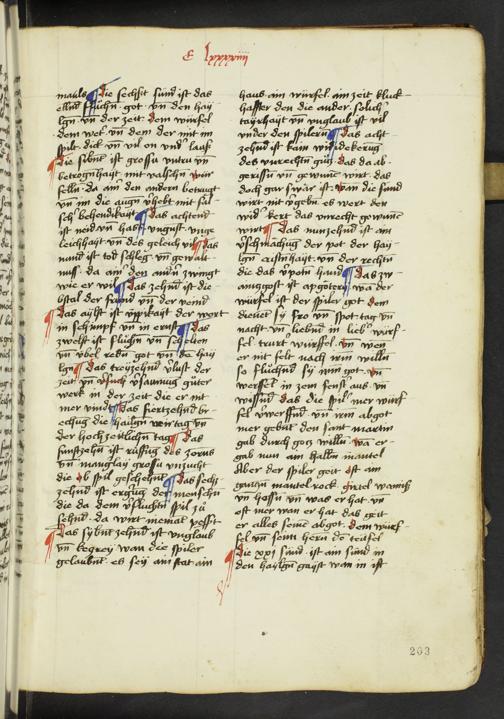 C lxxxxiiii
mails die sechsst sünd ist das
ellend flüchen got vn den hay
lgn vn der zeit dem würfel
dem wolf vn dem der mit im
spilt dick vn vil on vnderlass
Die sibent ist grossu vntru vn
betrognhayt mit valschn wür
felln da ain den andern betrugt
vn im die augn v'hebt mit söl
sch behendikayt Das achtend
ist neid vn hass vngust vnge
leichhayt vn des geleich Das
nund ist tod schleg vn gewalt
niss da ain den andn zwingt
wie er wil das zehend ist die
bstal der frund vn der veind
Das aylft ist üppikayt der wort
in schimpf vn in ernst Das
zwelft ist fluchn vn schelten
vn übel redn got vn die hay
lgn Das dreyzehend v'lust der
zeit vn v'sumung guter
werk in der zeit die er nit
mer vindt das fiertzehend br
echug die hailgn veirtag vn
der hochzeitlichn tag Das
funfzehn ist rüssug des zorns
vn manslay grossu vnzucht
die ob spil geschehend Das sech
zehend ist ergrug der menschn
die da dem v'fluchtn spil zu
sehend da wirt niemat pessit
Das sybntzehend ist vnglaub
vn kegrey wan die spiler
gelaubnt es sey ain stat ain
haus ain würfel ain zeit kluck
haffter den die ander solich
tayrhayt vn vnglaub ist vil
vnder den spilern Das acht
zehend ist kain widekerug
des vnrechtn gutz das da ab
gerissn vn gewunen wirt das
doch gar swär ist wan die sund
wirt nit vgebn es wert den
wid' kert das vnrecht gewunen
wirt Das nunzehend ist am
v'schmachug der pot der hay
lgn cristnhayt vn der rechtn
die das v'potn hand Das zw
ainggost ist apgotery wa der
würfel ist der spiler got dem
dienet sy fro vn spot tag vn
nacht vn liebend in lieb' würf
fel trurt würffel vn wen
er nit felt nach irm willn
so fluchend sy irm got vn
werffel in zem fenst aus vn
wissend das die spil mer würf
fel v'werffend vn irm abgot
mer gebnt den sant martin
gab durch gotz willn wa er
gab nun ain halbn mantel
Aber der spiler geit oft ain
gantzn mantel rock girtel wamss
vn hossn vn was er hat vn
oft mer wan er hat das geit
er alles seine abgot dem würf
fel vn senn hern de teufel
Die xxi sünd ist ain sünd in
den haylgn gayst wan in ist
203